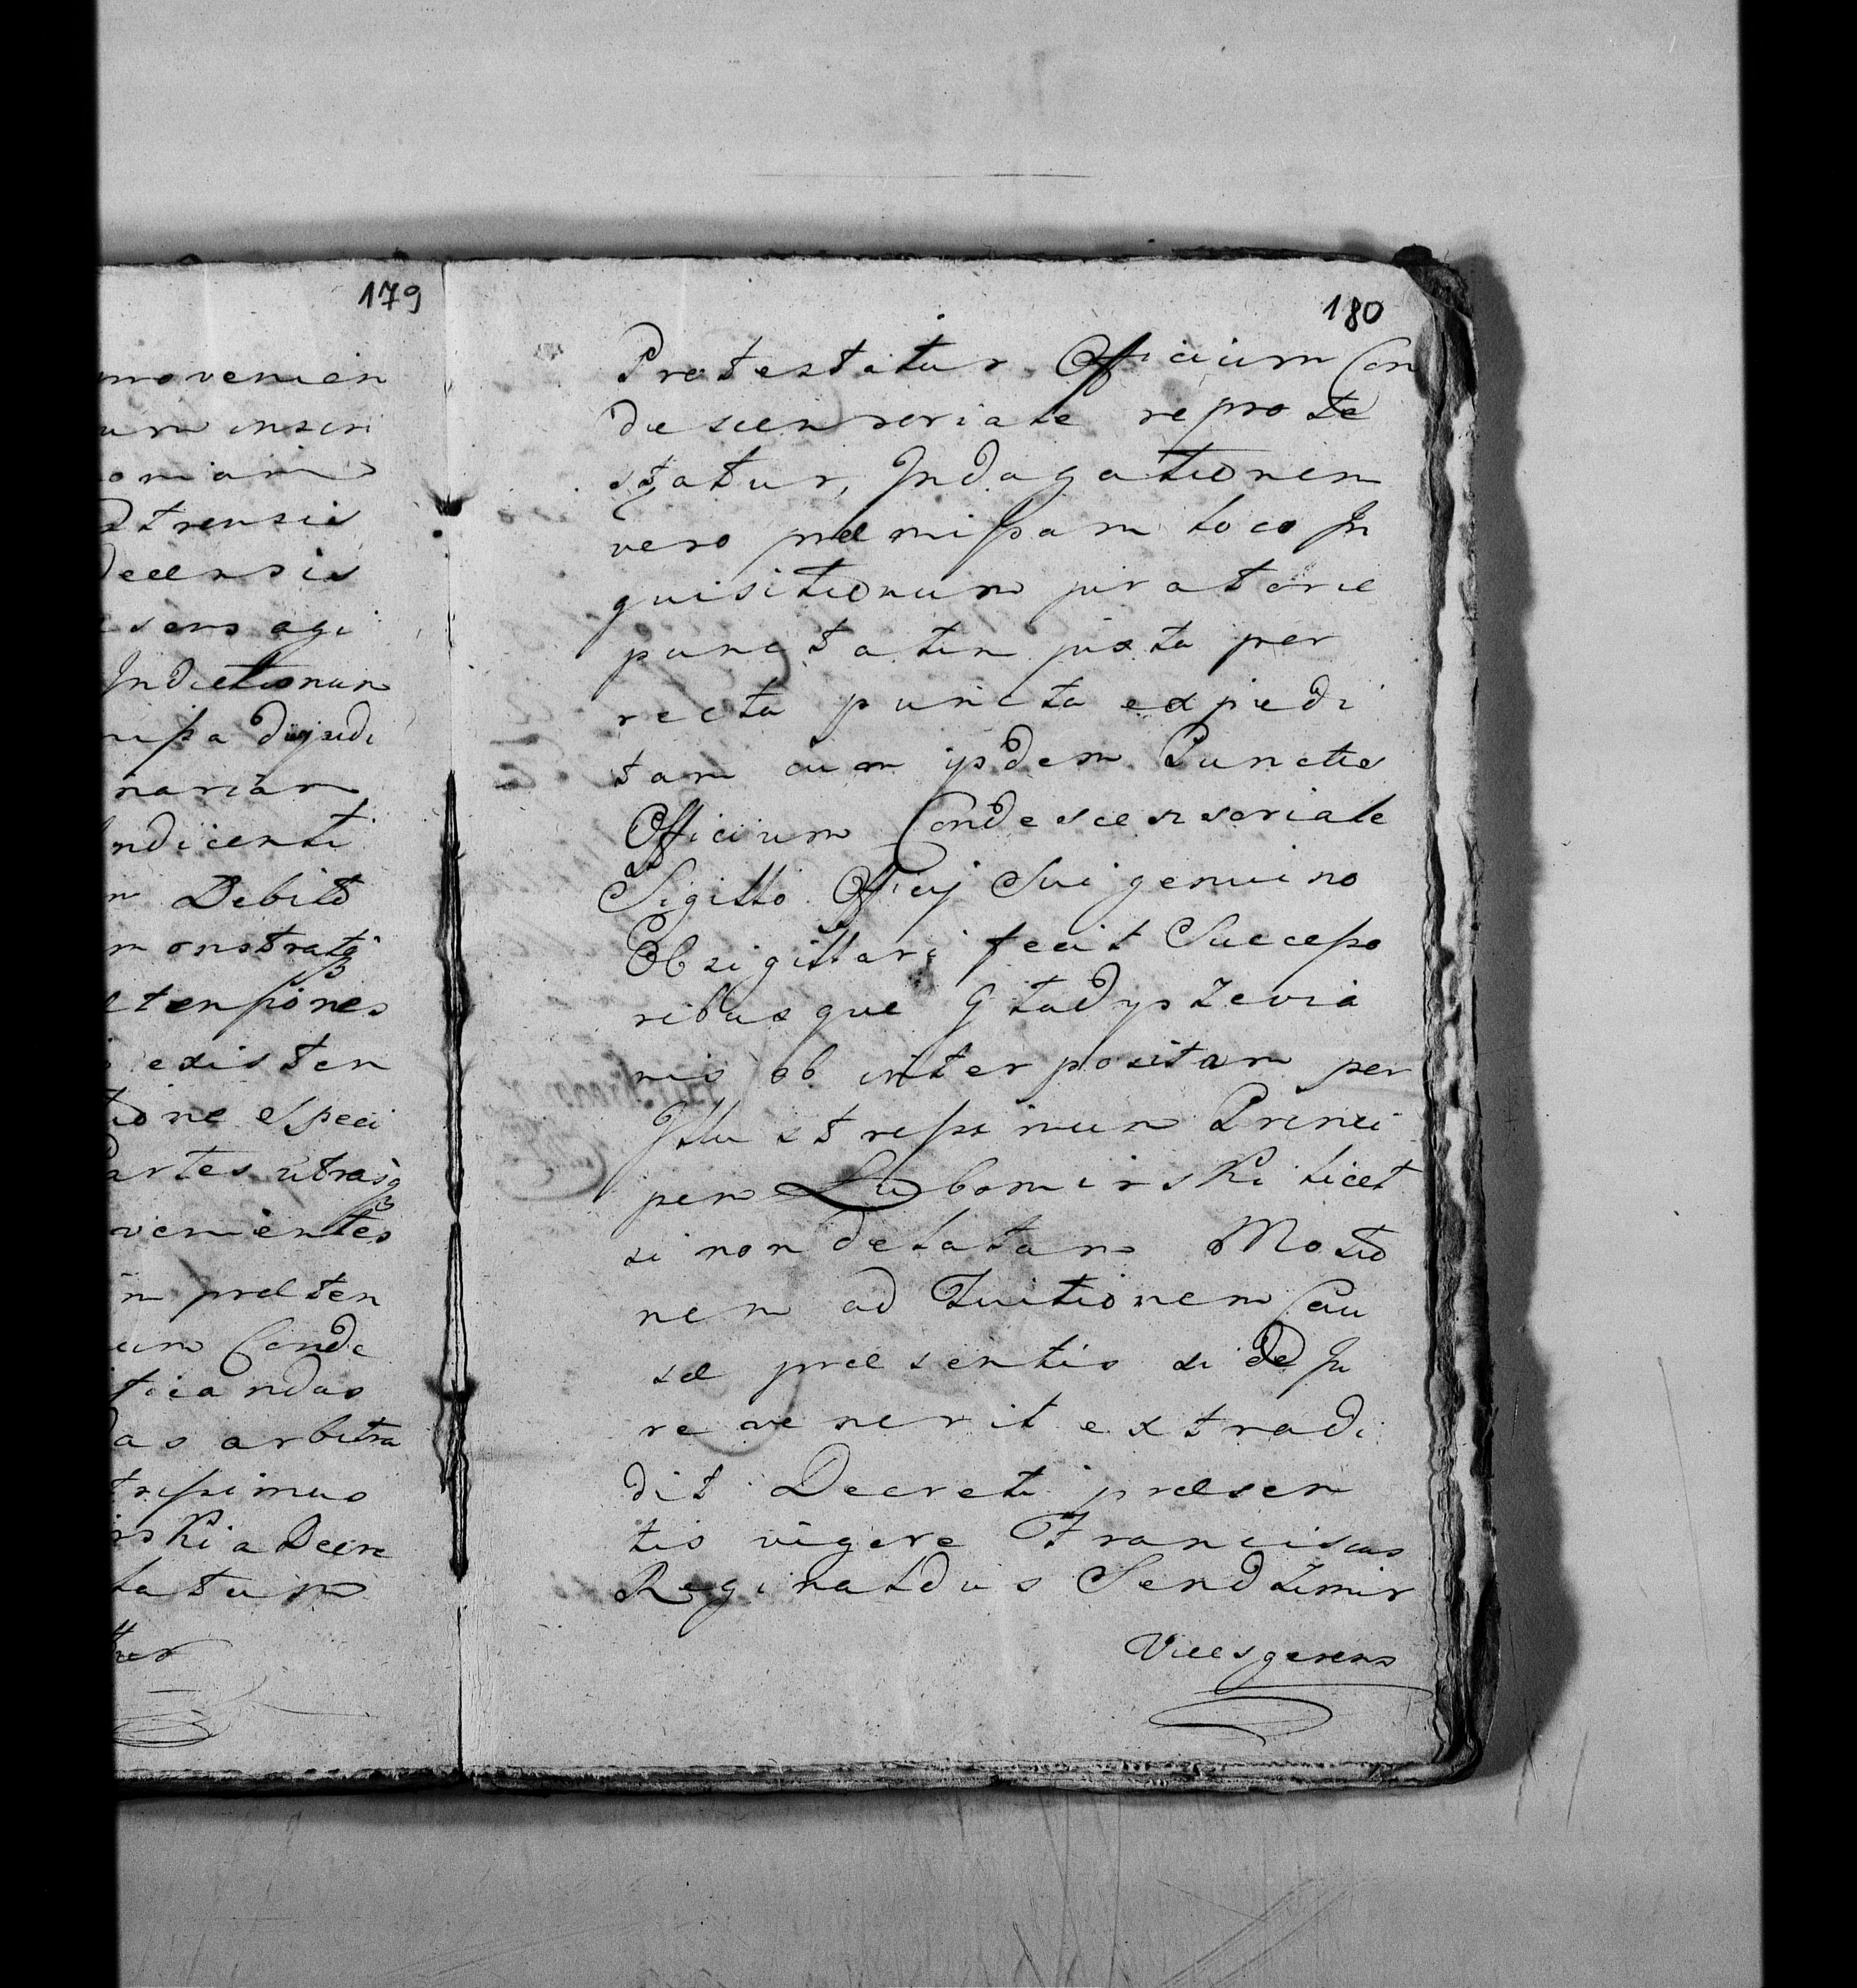 179
movenien
um inscri
oniam
dtrensis
decensis
sens agi
Indictionum
missa dijudi
nariam
ndicenti
m Debito
monstratq
etenssiones
existen
tione especi
artes utrasq
venientes
in præten
um Conde
ticandas
das arbitra
trissimus
rski a Decre
latum
180
Protestatur Officium Con
descensoriale reprote
statur, Indagationem
vero præmissam loco In
quisitionum juratorie
punctatim juxta per
recta puncta expedi
tam cum ijsdem Punctis
Officium Condescensoriale
Sigillo Officij Sui genuino
Obsigillari fecit Successo
ribusque Gładyszevia
nis ob interpositam per
Illustrissimum Princi
pem Lubomirski licet
si non delatam Motio
nem ad Tuitionem Cau
sæ præsentis si de Ju
re venerit extradi
dit Decreti præsen
tis vigore Franciscus
Reginaldus Sendzimir
Vicesgerens